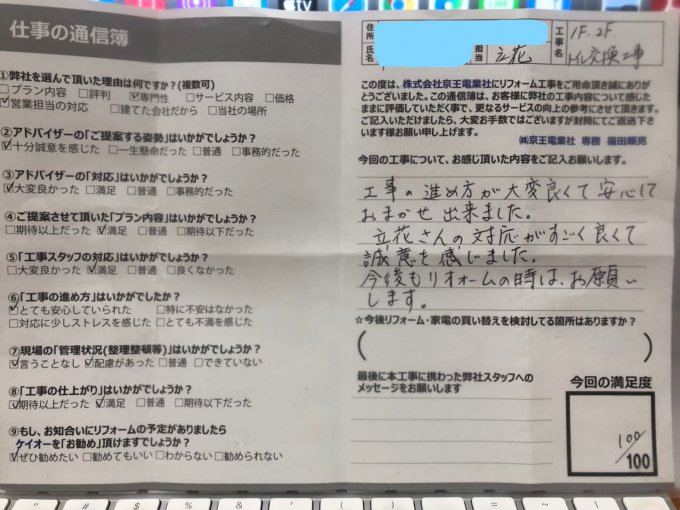 仕事の通信簿
①弊社を選んで頂いた理由は何ですか?(複数可)
□プラン内容 □評判 ☑専門性 □サービス内容 □価格
☑営業担当の対応 □建てた会社だから □当社の場所
②アドバイザーの「ご提案する姿勢」はいかがでしょうか?
☑十分誠意を感じた □一生懸命だった □普通 □事務的だった
③アドバイザーの「対応」はいかがでしょうか?
☑大変良かった □満足 □普通 □事務的だった
④ご提案させて頂いた「プラン内容」はいかがでしょうか?
□期待以上だった ☑満足 □普通 □期待以下だった
⑤「工事スタッフの対応」はいかがでしょうか?
□大変良かった ☑満足 □普通 □良くなかった
⑥「工事の進め方」はいかがでしたか?
☑とても安心していられた □特に不安はなかった
□対応に少しストレスを感じた □とても不満を感じた
⑦現場の「管理状況(整理整頓等)」はいかがでしょうか?
☑言うことなし ☑配慮があった □普通 □できていない
⑧「工事の仕上がり」はいかがでしょうか?
☑期待以上だった ☑満足 □普通 □期待以下だった
⑨もし、お知合いにリフォームの予定がありましたら
ケイオーを「お勧め」頂けますでしょうか?
☑ぜひ勧めたい □勧めてもいい □わからない □勧められない
住所
氏名
担当
立花
工事名
1F.2F.
トイレ交換工事
この度は、株式会社京王電業社にリフォーム工事をご用命頂き誠にありが
とうございました。この通信簿は、お客様に弊社の工事内容について感じた
ままに評価していただく事で、更なるサービスの向上の参考にさせて頂きます。
ご記入いただけましたら、大変お手数ではございますが封筒にてご返送下さ
います様お願い申し上げます。
㈱京王電業社 専務 福田順亮
今回の工事について、お感じ頂いた内容をご記入お願いします。
工事の進め方が大変良くて安心して
おまかせ出来ました。
立花さんの対応がすごく良くて
誠意を感じました。
今後もリフォームの時は、お願い
します。
☆今後リフォーム・家電の買い替えを検討してる箇所はありますか?
( )
最後に本工事に携わった弊社スタッフへの
メッセージをお願いします
今回の満足度
100
/100